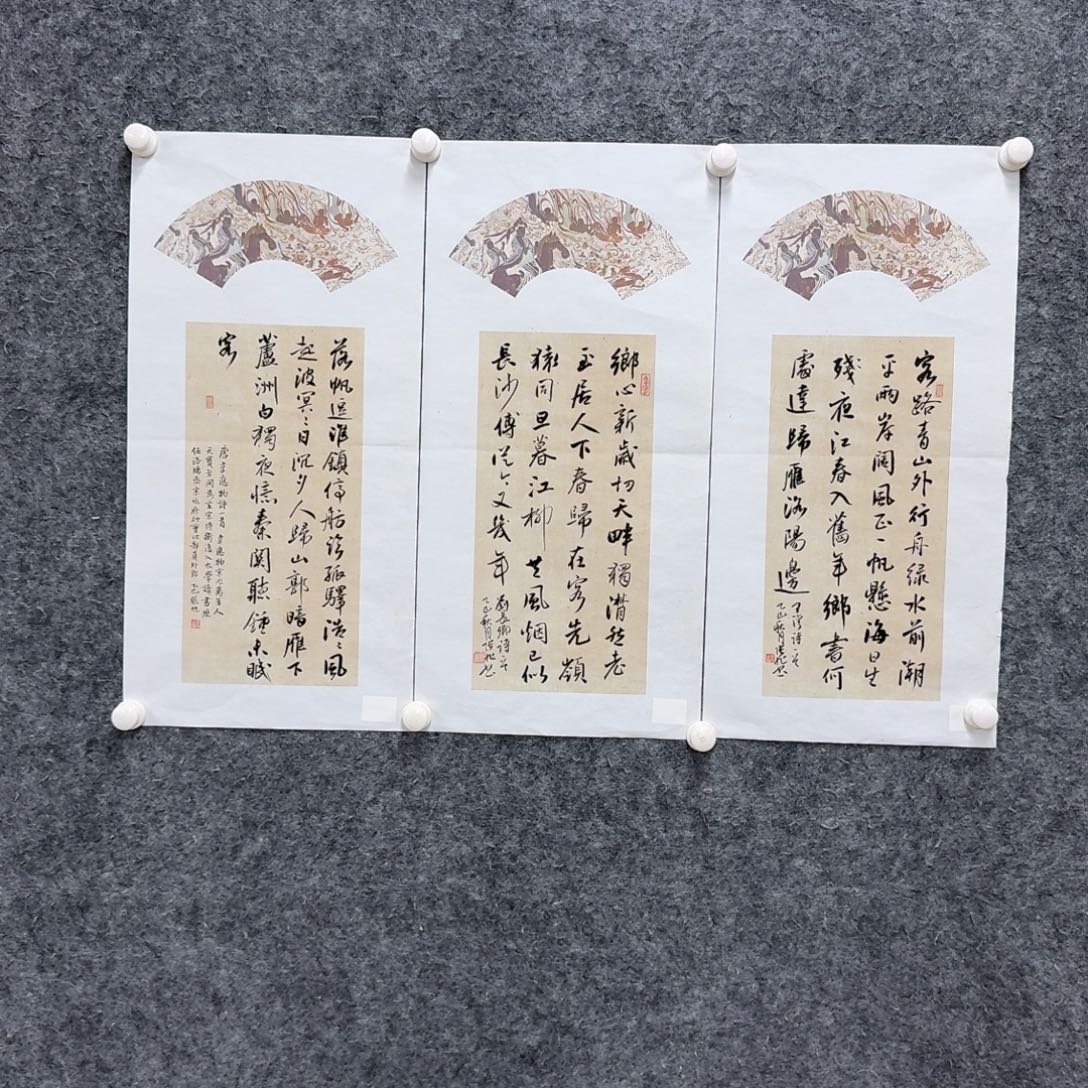 客路青山外行舟绿水前潮
平兩岸阔風正一帆懸海日生
殘夜江春入舊年鄉書何
處達歸雁洛陽邊
王湾詩一首
乙巳秋月
鄉心新歲切天畔獨潸然老
至居人下春歸在客先嶺
猿同旦暮江柳共風烟已似
長沙傅從今又幾年
劉長卿詩一首
乙巳秋月
落帆逗淮鎮停舫臨孤驛浩浩風
起波冥冥日沉夕人歸山郭暗雁下
蘆洲白獨夜憶秦関聽鍾未眠
客
唐韋應物詩一首 韋應物京兆萬年人
天寶年間為玄宗侍衛後入太學讀書